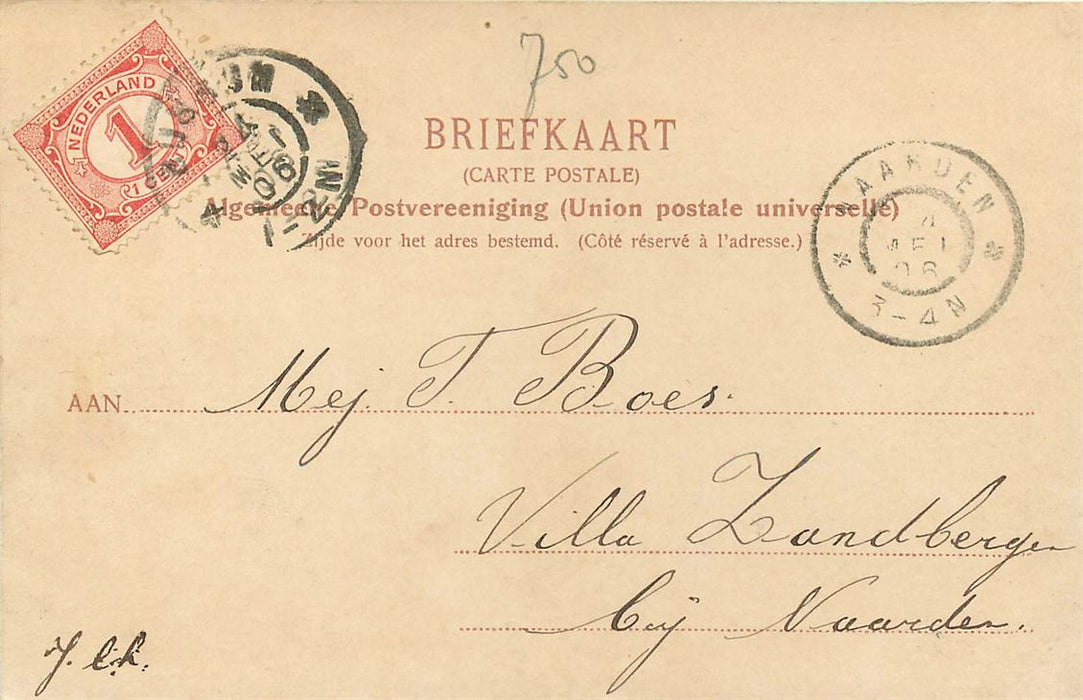 750
NEDERLAND
1
1 CENT
BRIEFKAART
(CARTE POSTALE)
Algemeene Postvereeniging (Union postale universelle)
Zijde voor het adres bestemd. (Côté réservé à l'adresse.)
NAARDEN
06
3-4N
1-2N
AAN
Mej. T. Boes.
Villa Zandbergen
bij Naarden.